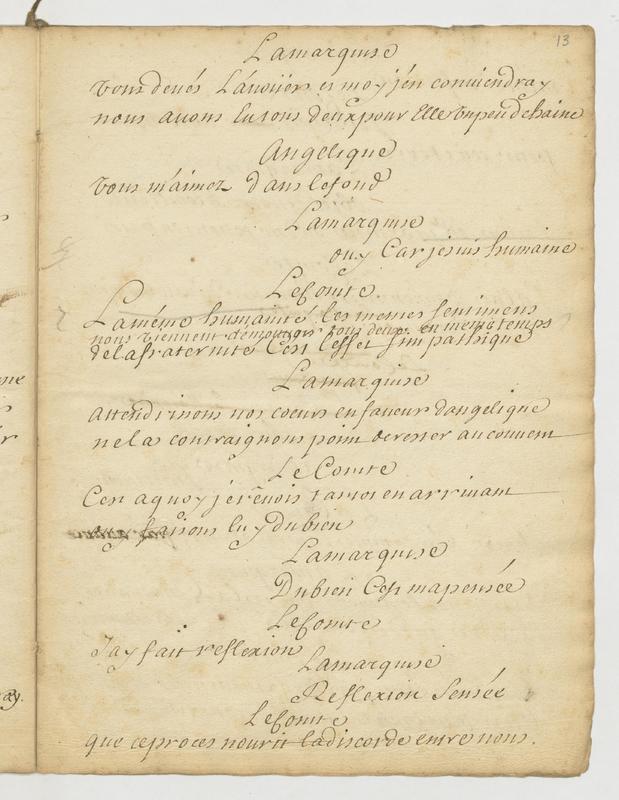 13
Lamarquise
vous devés Lavoüer et moy jen conviendray
nous avons Eu tous deux pour Elle un peu de haine
Angelique
vous m'aimez dans le fond
Lamarquise
ouy Car je suis humaine
Le Comte.
La même humanité les memes sentimens
nous viennent démouvoir tous deux en meme temps
de la fraternité C'est l'effet simpathique
Lamarquise
attendrissons nos coeurs en faveur d'angelique
ne la contraignons point de rester au couvent
Le Comte
Cest a quoy je rêvois tantot en arrivant
ouy faisons luy du bien
Lamarquise
Du bien C'est ma pensée
Le Comte
J'ay fait reflexion
Lamarquise
Reflexion Sensée
Le Comte
que ce proces nourit la discorde entre nous.